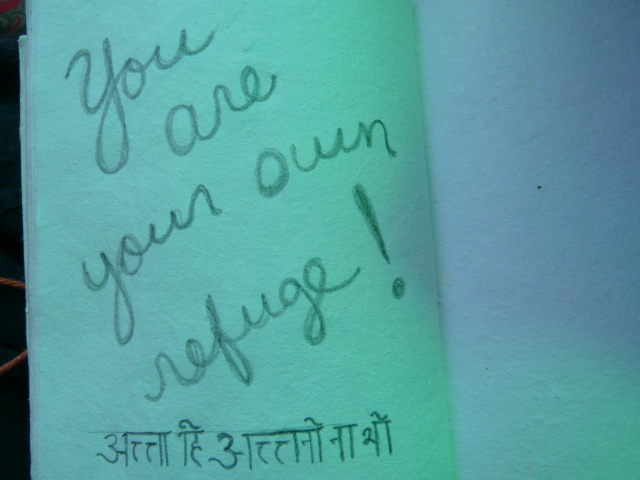 You
are
your own
refuge!
अत्ता हि अत्तनो नाथो